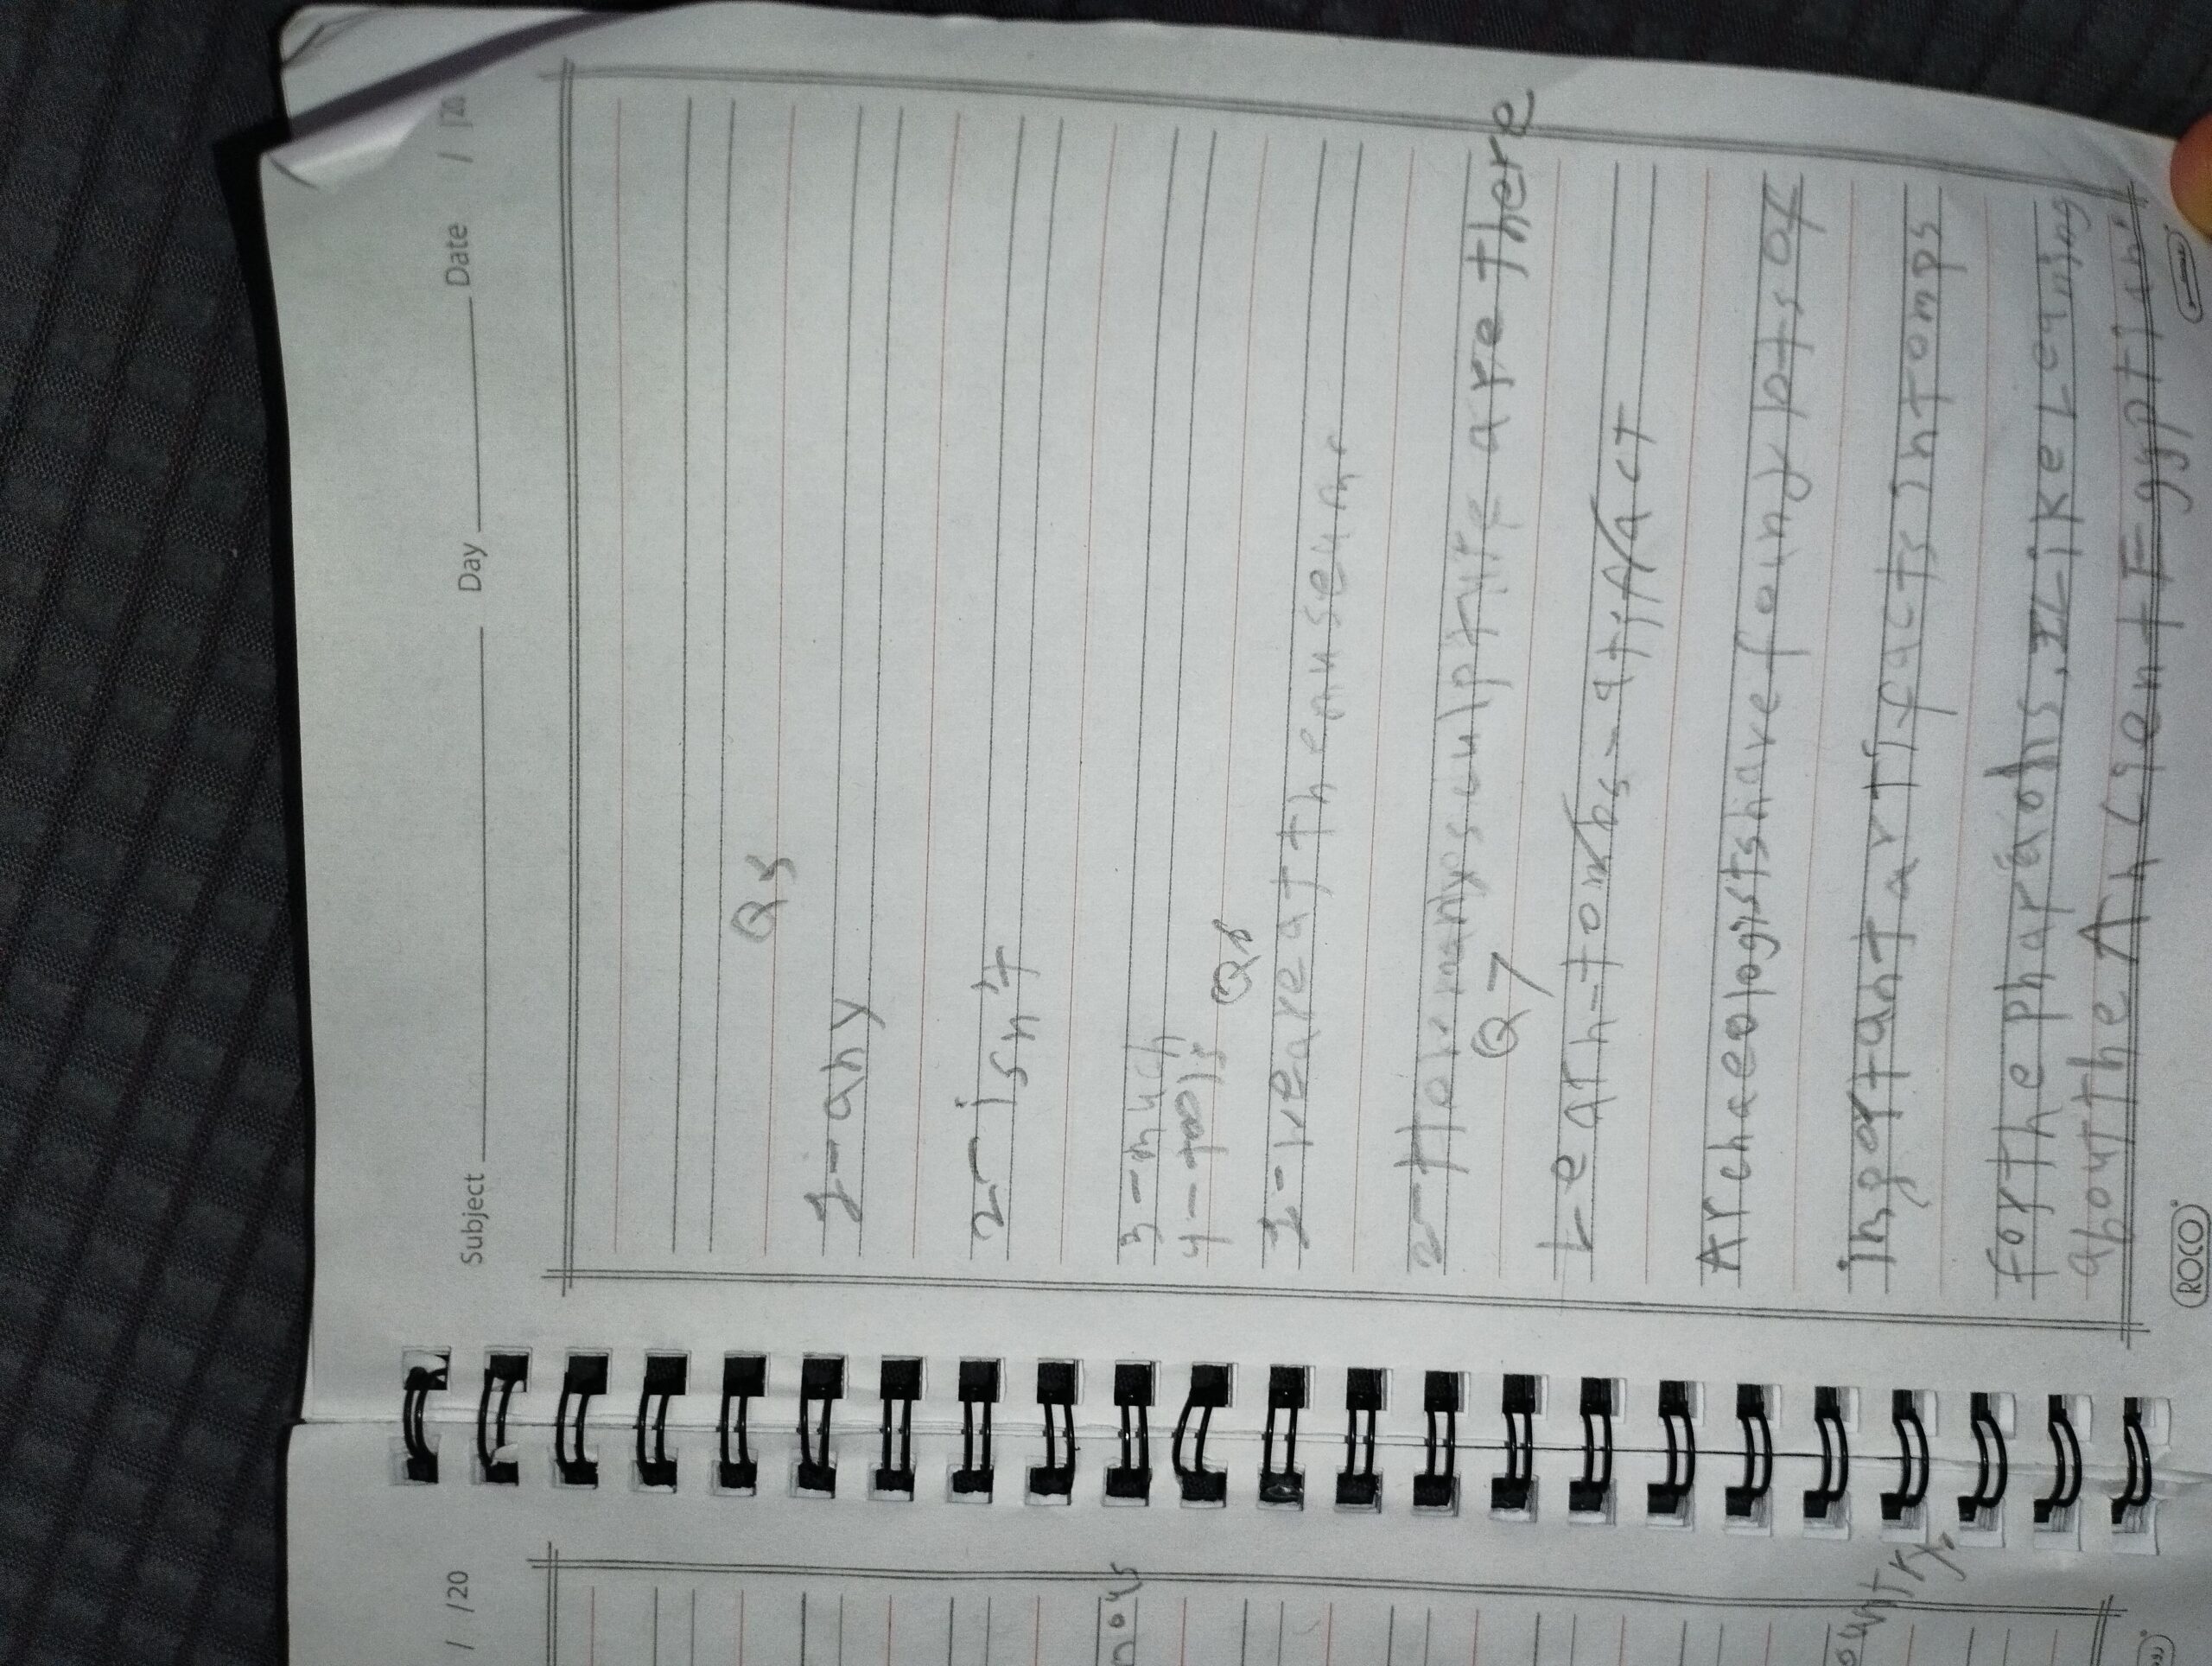 Subject Day Date / /20
Q5
1- any
2- isn't
3- much
4- tools
Q6
1- we are at the museum.
2- How many sculpture are there
Q7
Learn - tombs - artiffact
Archaeologists have found lots of
important artifacts in tomps
for the pharaohs. I Like Learning
about the Ancient Egyptian.
ROCO
/ /20